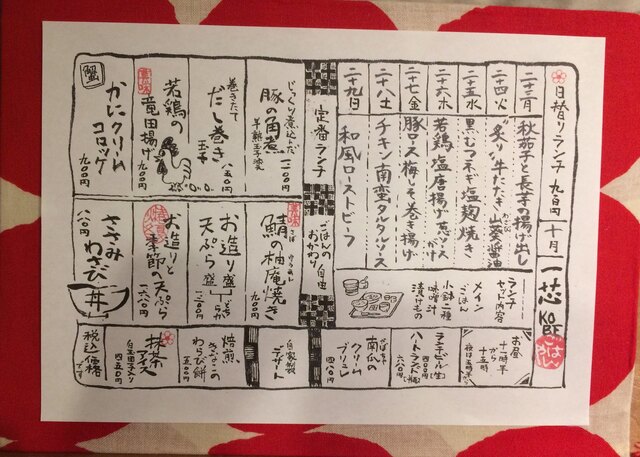 日替りランチ 九百円
十月
一芯
KOBE
ごはんや
二十三月 秋茄子と長芋の揚げ出し
二十四火 炙り牛たたき 山葵醤油
わさび
二十五水 黒むつネギ塩麹焼き
二十六木 若鶏塩唐揚げ 葱ソースがけ
二十七金 豚ロース梅しそ巻き揚げ
二十八土 チキン南蛮タルタルソース
二十九日 和風ローストビーフ
ランチセット内容
メイン
ごはん
小鉢二種
味噌汁
漬けもの
お昼
十一時半から
十五時
夜は五時半〜
ランチビール(生)
四百円
ハートランド(瓶)
六八〇円
定番ランチ
じっくり煮込んだ
豚の角煮
半熟玉子添え
一一〇〇円
巻きたて
だし巻き玉子
八五〇円
若鶏の
竜田揚げ
九〇〇円
蟹
かにクリーム
コロッケ
九〇〇円
ごはんの
おかわり自由
鯖の柚庵焼き
九〇〇円
お造り盛
天ぷら盛
どちらか
一二〇〇円
お造りと
季節の天ぷら
ささみ
わさび丼
八八〇円
かぼちゃ
南瓜の
クリーム
ブリュレ
四八〇円
自家製
デザート
焙煎
きなこの
わらび餅
五〇〇円
抹茶
アイス
白玉団子入り
四五〇円
税込価格
です